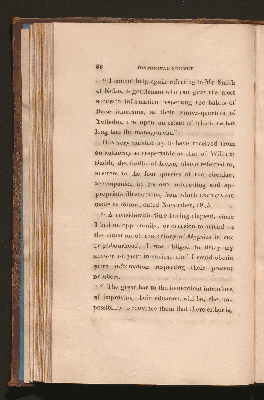 98 HISTORICAL SURVEY
"I cannot help again referring to Mr. Smith
of Kelso, a gentleman who can give the most
accurate information respecting the habits of
those Itinerants, as their winter-quarters of
Yetholm, are upon an estate of which he has
long had the management."
It is very satisfactory to have received from
an authority so respectable as that of William
Smith, the Baillie of Kelso, above referred to,
answers to the four queries of the circular,
accompanied by
interesting and ap-
propriate illustrations, from which extracts are
made as follow, dated November, 1815.
"A considerable time having elapsed, since
I had an opportunity, or occasion to attend to
the situation of the colony of Gypsies in our
neighbourhood, I was obliged to delay my
answer to your inquiries, until I could obtain
more information respecting their present
numbers.
"The great bar to the benevolent intentions
of improving their situation will be, the im-
possibility to convince them that there either is,